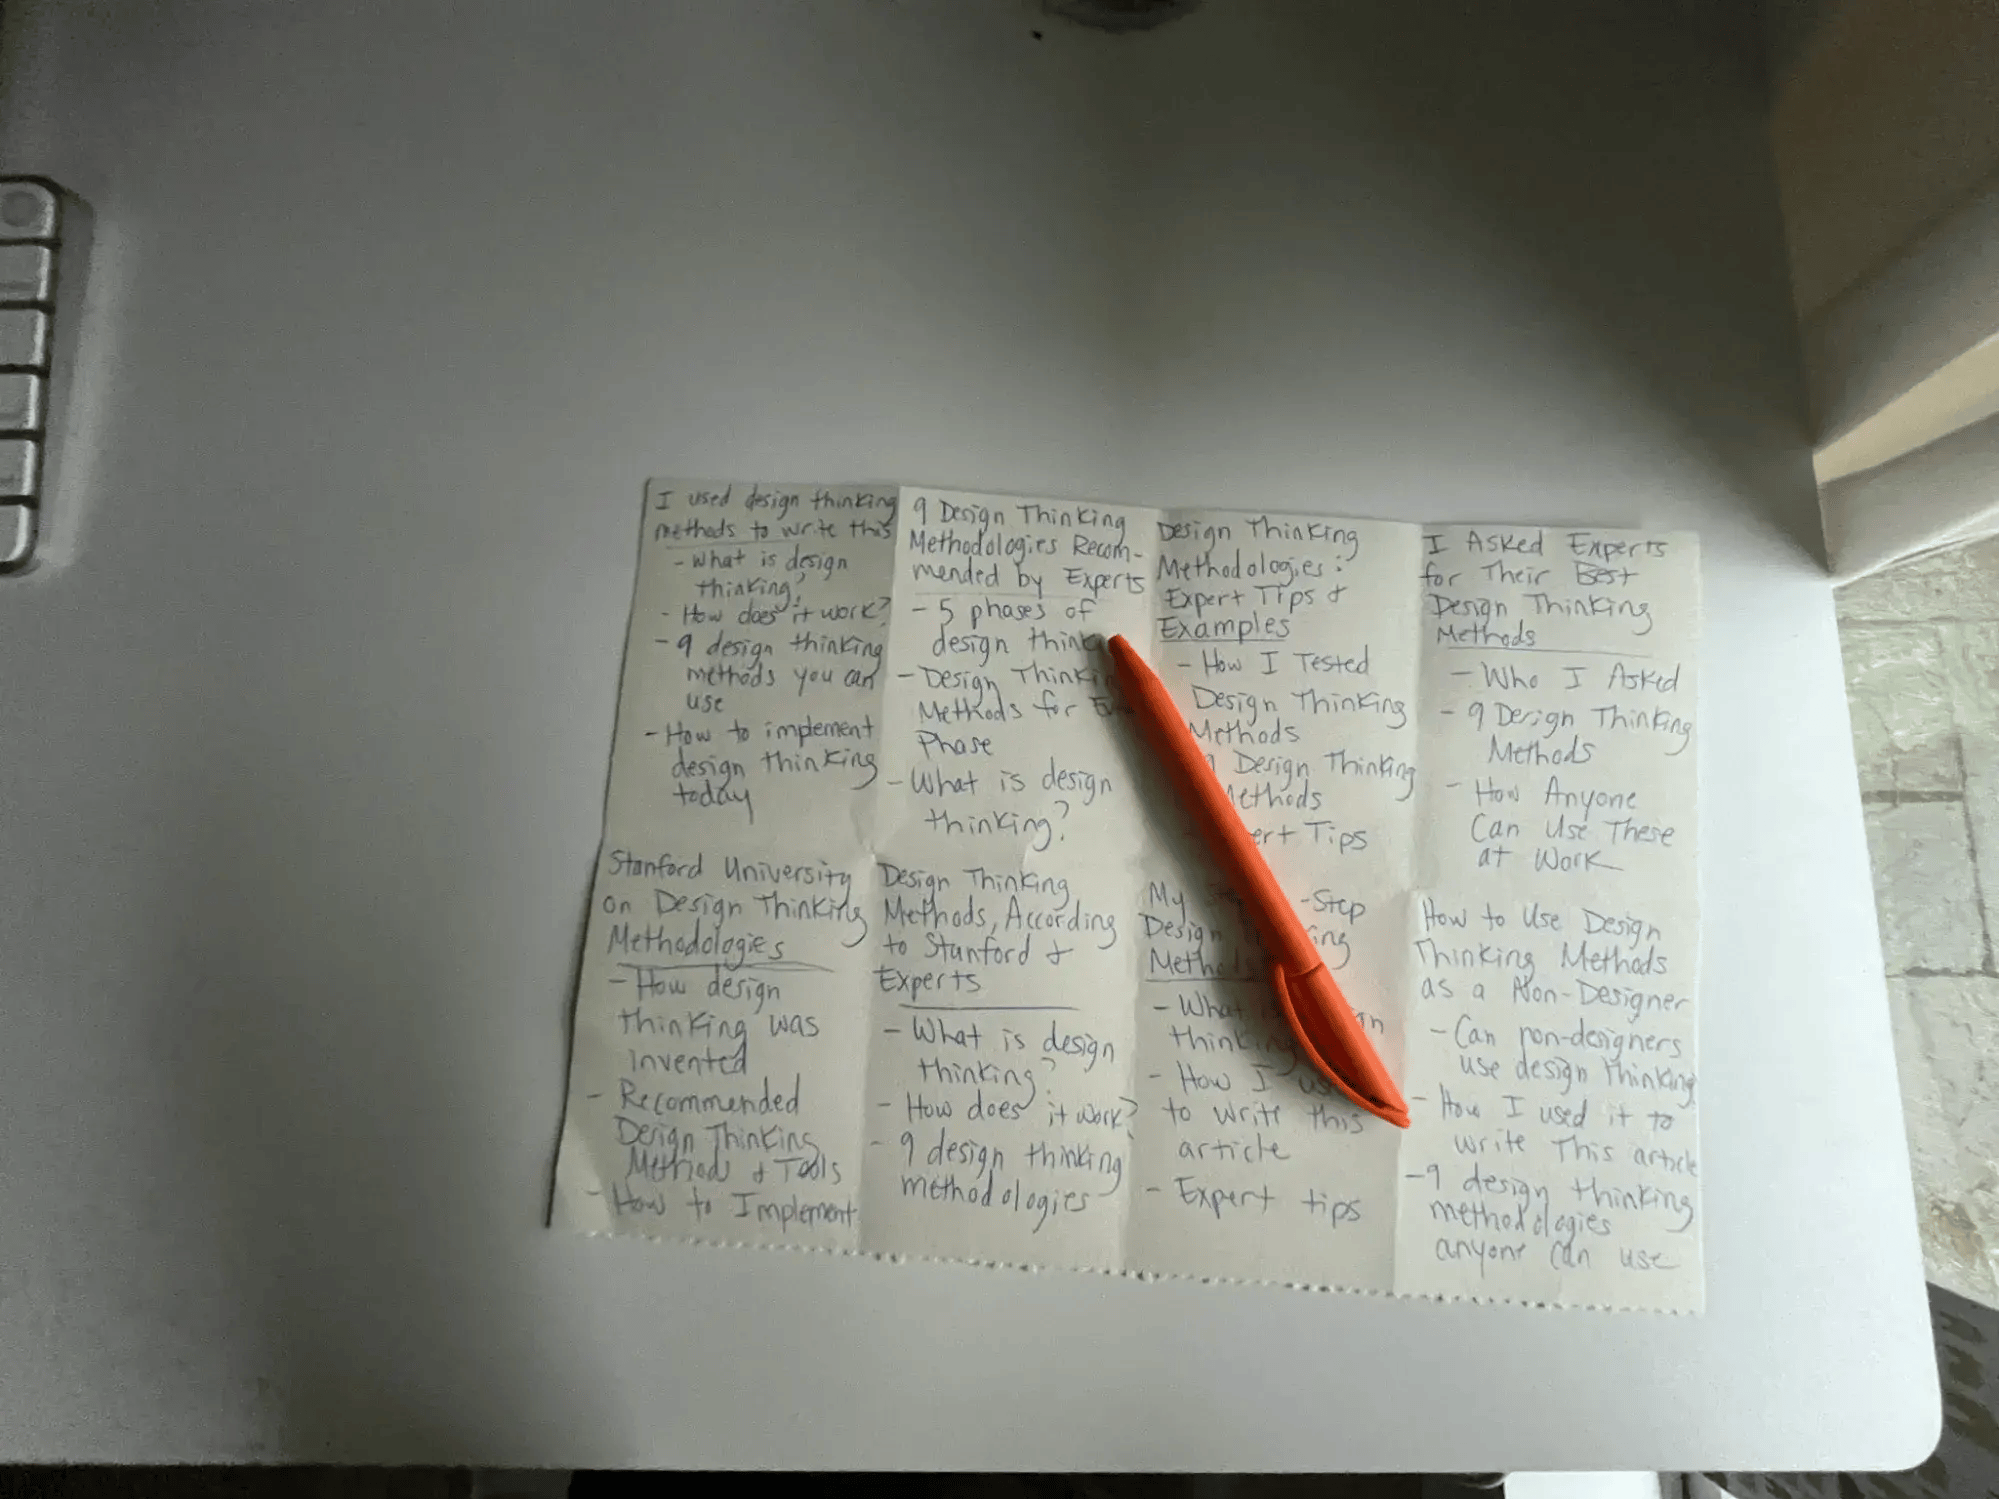 I used design thinking
methods to write this
- What is design
thinking?
- How does it work?
- 9 design thinking
methods you can
use
- How to implement
design thinking
today
9 Design Thinking
Methodologies Recom-
mended by Experts
- 5 phases of
design think
- Design Thinkin
Methods for
Phase
- What is design
thinking?
Design Thinking
Methodologies:
Expert Tips &
Examples
- How I Tested
Design Thinking
Methods
Design Thinking
Tips
I Asked Experts
for Their Best
Design Thinking
Methods
- Who I Asked
- 9 Design Thinking
Methods
- How Anyone
Can Use These
at Work
Stanford University
on Design Thinking
Methodologies
- How design
thinking was
invented
- Recommended
Design Thinking
Methods & Tools
- How to Implement
Design Thinking
Methods, According
to Stanford &
Experts
- What is design
thinking?
- How does it work?
- 9 design thinking
methodologies
My -Step
Design
- What
- How I
to write this
article
- Expert tips
How to Use Design
Thinking Methods
as a Non-Designer
- Can non-designers
use design thinking
- How I used it to
write This article
- 9 design thinking
methodologies
anyone can use